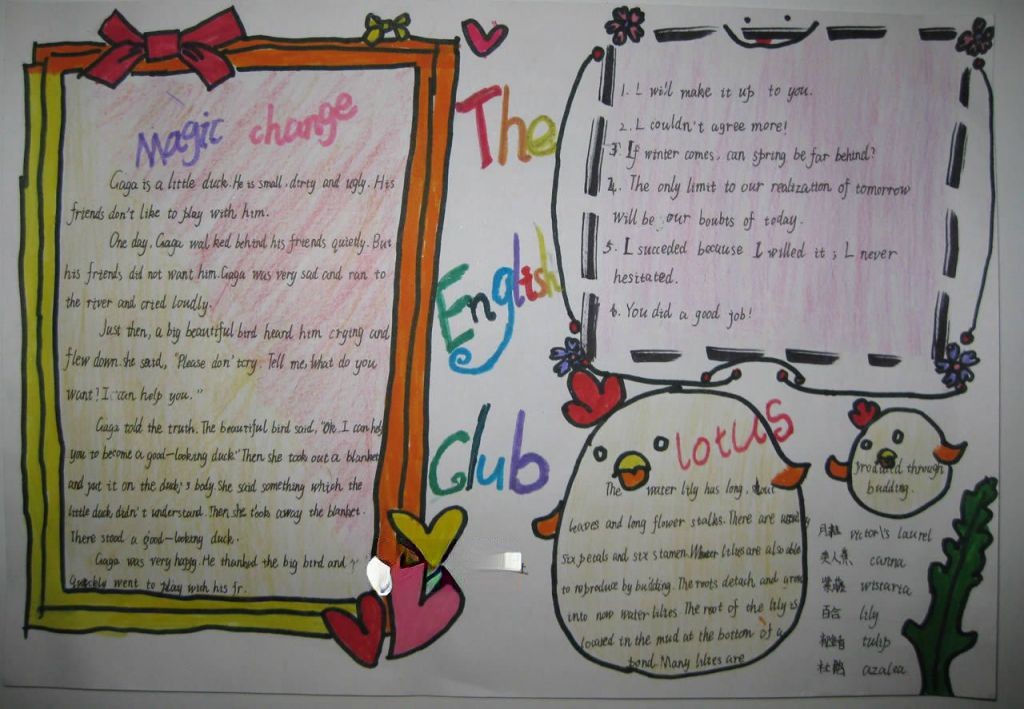 Magic change
Gaga is a little duck. He is small, dirty and ugly. His
friends don't like to play with him.
One day, Gaga walked behind his friends quietly. But
his friends did not want him. Gaga was very sad and ran to
the river and cried loudly.
Just then, a big beautiful bird heard him crying and
flew down. she said, "Please don't cry. Tell me, What do you
want? I can help you."
Gaga told the truth. The beautiful bird said, "Ok. I can help
you to become a good-looking duck." Then she took out a blanket
and put it on the duck's body. She said something which the
little duck didn't understand. Then she took away the blanket.
There stood a good-looking duck.
Gaga was very happy. He thanked the big bird and
Quickly went to play with his fr.
The
English
Club
1. I will make it up to you.
2. I couldn't agree more!
3. If winter comes, can spring be far behind?
4. The only limit to our realization of tomorrow
will be our boubts of today.
5. I succeded because I willed it; I never
hesitated.
6. You did a good job!
lotus
The water lily has long, stout
leaves and long flower stalks. There are usually
six petals and six stamen. Water lilies are also able
to reproduce by budding. The roots detach and grow
into now water-lilies. The root of the lily is
located in the mud at the bottom of a
pond. Many lilies are
produced through
budding.
月桂 victor's laurel
美人蕉 canna
紫藤 wistaria
百合 lily
郁金香 tulip
杜鹃 azalea